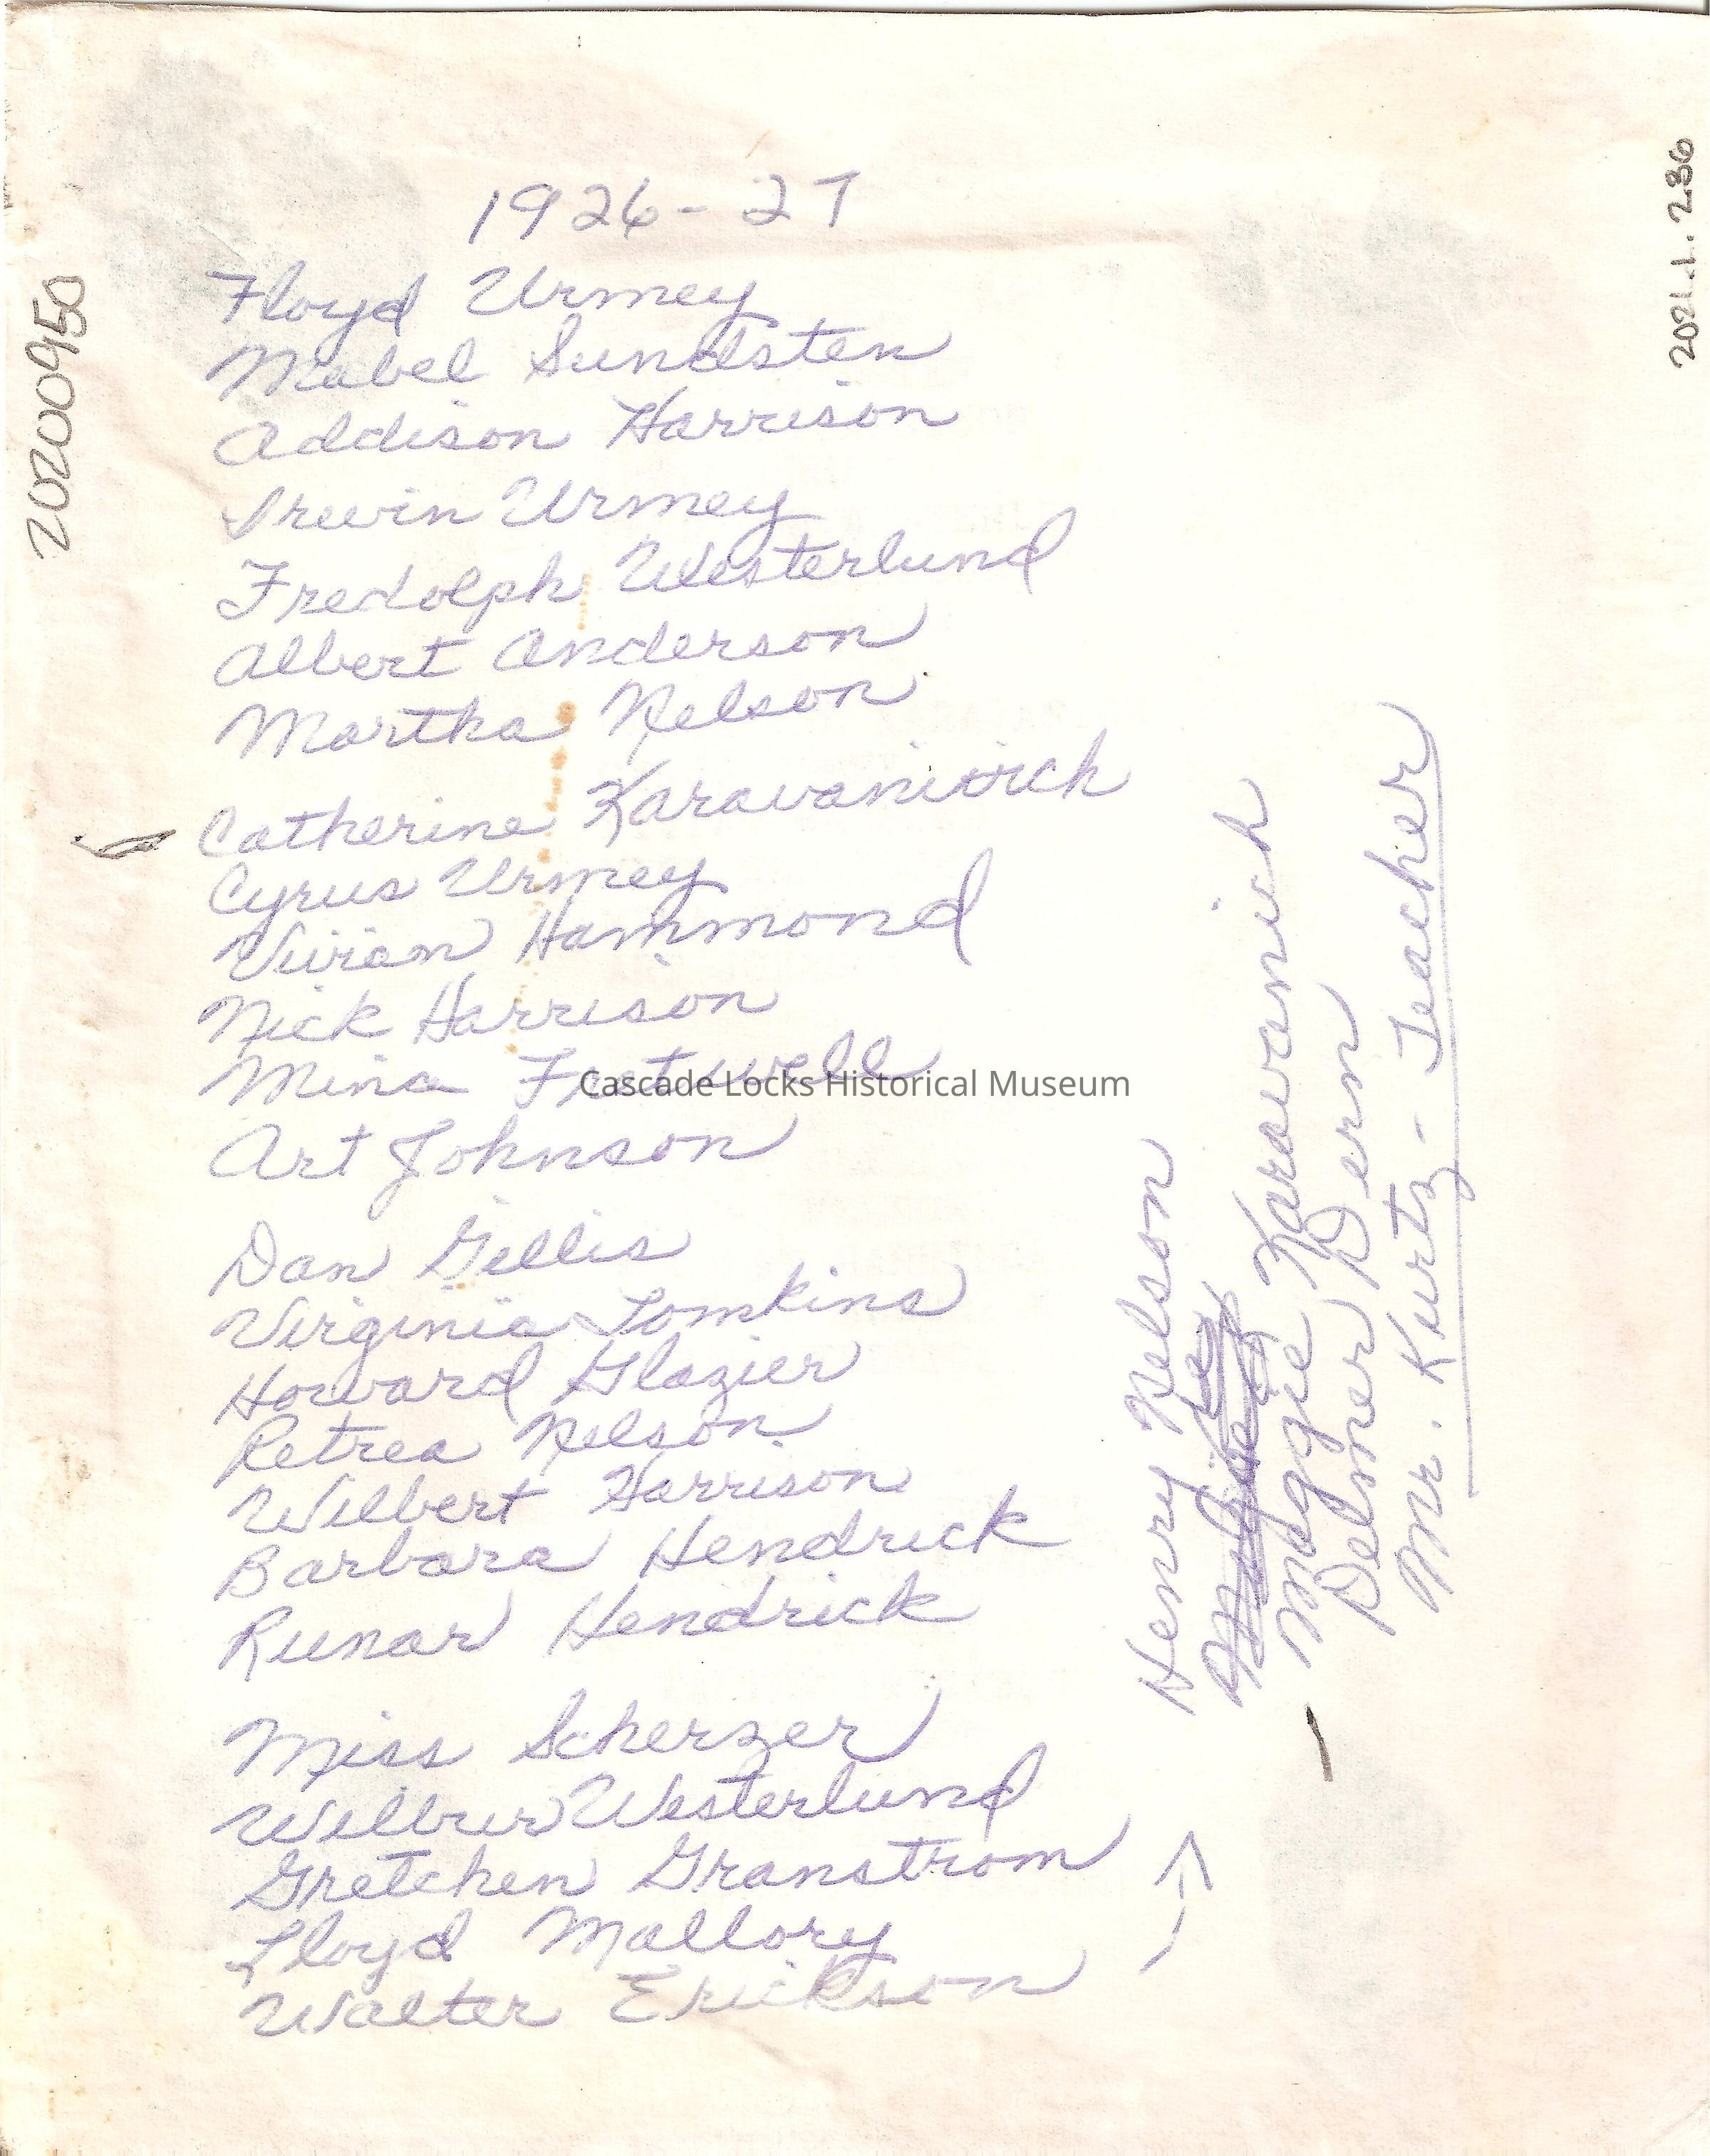 1926-27
Floyd Urmey
Mabel Sundsten
Addison Harrison
Irevin Urmey
Fredolph Westerlund
Albert Anderson
Martha Nelson
Catherine
Cyrus Urmey
Vivian Hammond
Nick Harrison
Mina Fretwell
Art Johnson
Dan Gillis
Virginia Tomkins
Howard Glazier
Retrea Nelson
Wilbert Harrison
Barbara Hendrick
Runar Hendrick
Miss Scherzer
Wilbur Westerlund
Gretchen Granstrom
Lloyd Mallory
Walter Erickson
Henry Nelson
Maggie Karavanich
Delmer Dern
Mr. Kurtz - Teacher
20200950
2021.1.286
Cascade Locks Historical Museum